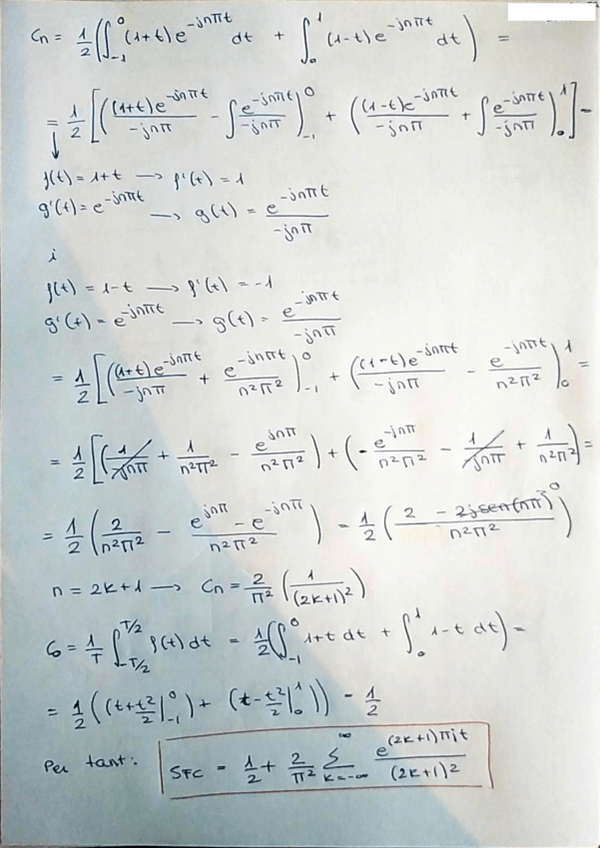 Cn = 1/2 (∫_{-1}^{0} (1+t) e^{-jnπt} dt + ∫_{0}^{1} (1-t) e^{-jnπt} dt) =
= 1/2 [((1+t)e^{-jnπt}/-jnπ - ∫ e^{-jnπt}/-jnπ)_{-1}^{0} + ((1-t)e^{-jnπt}/-jnπ + ∫ e^{-jnπt}/-jnπ)_{0}^{1}] =
↓
f(t) = 1+t → f'(t) = 1
g'(t) = e^{-jnπt} → g(t) = e^{-jnπt}/-jnπ
i
f(t) = 1-t → f'(t) = -1
g'(t) = e^{-jnπt} → g(t) = e^{-jnπt}/-jnπ
= 1/2 [((1+t)e^{-jnπt}/-jnπ + e^{-jnπt}/n²π²)_{-1}^{0} + ((1-t)e^{-jnπt}/-jnπ - e^{-jnπt}/n²π²)_{0}^{1} =
= 1/2 [(1/-jnπ + 1/n²π² - e^{jnπ}/n²π²) + (- e^{-jnπ}/n²π² - 1/-jnπ + 1/n²π²) =
= 1/2 (2/n²π² - e^{jnπ} - e^{-jnπ}/n²π²) = 1/2 (2 - 2jsen(nπ)^{→0}/n²π²)
n = 2k+1 → Cn = 2/π² (1/(2k+1)²)
C0 = 1/T ∫_{-T/2}^{T/2} f(t) dt = 1/2 (∫_{-1}^{0} 1+t dt + ∫_{0}^{1} 1-t dt) =
= 1/2 ((t+t²/2|_{-1}^{0}) + (t-t²/2|_{0}^{1})) = 1/2
Per tant: SFC = 1/2 + 2/π² ∑_{k=-∞}^{∞} e^{(2k+1)πjt}/(2k+1)²